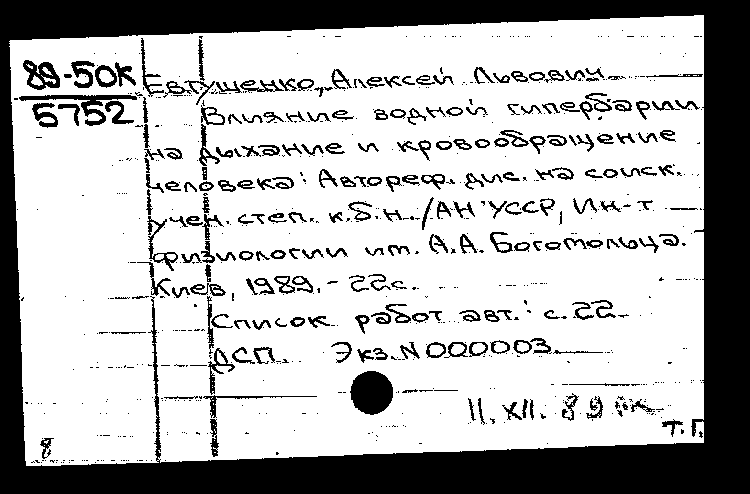 89-50К
5752
Евтушенко, Алексей Львович.
Влияние водной гипербарии
на дыхание и кровообращение
человека: Автореф. дис. на соиск.
учен. степ. к.б.н./АН УССР, Ин-т
физиологии им. А.А. Богомольца. -
Киев, 1989. - 22с.
Список работ авт.: с.22
ДСП. Экз. N 000003.
11. XII. 89
Т.Г.
8